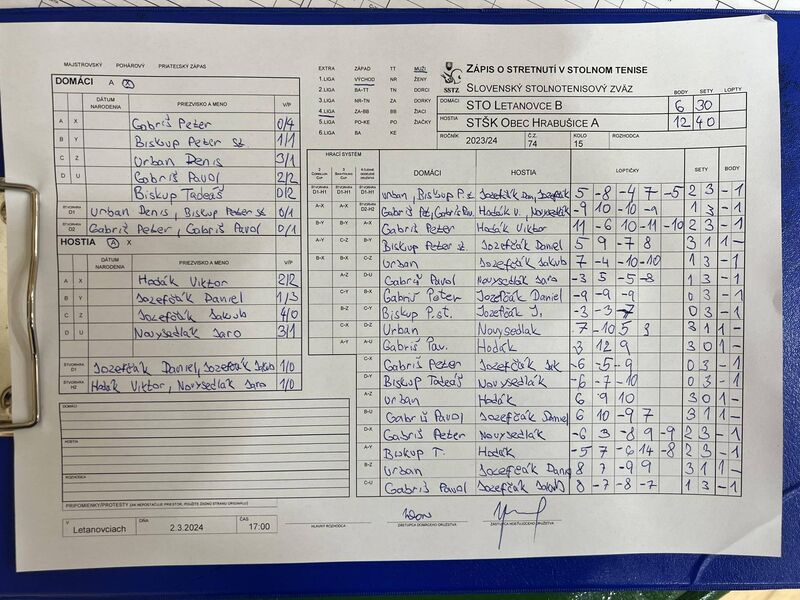 MAJSTROVSKÝ POHÁROVÝ PRIATEĽSKÝ ZÁPAS
DOMÁCI A X
DÁTUM NARODENIA PRIEZVISKO A MENO V/P
A X Gabriš Peter 0/4
B Y Biskup Peter st. 1/1
C Z Urban Denis 3/1
D U Gabriš Pavol 2/2
Biskup Tadeáš 0/2
ŠTVORHRA D1 Urban Denis, Biskup Peter st 0/1
ŠTVORHRA D2 Gabriš Peter, Gabriš Pavol 0/1
HOSTIA A X
DÁTUM NARODENIA PRIEZVISKO A MENO V/P
A X Hodák Viktor 2/2
B Y Jozefčák Daniel 1/3
C Z Jozefčák Jakub 4/0
D U Novysedlák Jaro 3/1
ŠTVORHRA D1 Jozefčák Daniel, Jozefčák Jakub 1/0
ŠTVORHRA H2 Hodák Viktor, Novysedlák Jaro 1/0
DOMÁCI
HOSTIA
ROZHODCA
PRIPOMIENKY/PROTESTY (AK NEPOSTAČUJE PRIESTOR, POUŽITE ZADNÚ STRANU ORIGINÁLU)
V Letanovciach DŇA 2.3.2024 ČAS 17:00
EXTRA ZÁPAD TT MUŽI
1.LIGA VÝCHOD NR ŽENY
2.LIGA BA-TT TN DORCI
3.LIGA NR-TN ZA DORKY
4.LIGA ZA-BB BB ŽIACI
5.LIGA PO-KE PO ŽIAČKY
6.LIGA BA KE
SSTZ
ZÁPIS O STRETNUTÍ V STOLNOM TENISE
SLOVENSKÝ STOLNOTENISOVÝ ZVÄZ
BODY SETY LOPTY
DOMÁCI STO LETANOVCE B 6 30
HOSTIA STŠK OBEC HRABUŠICE A 12 40
ROČNÍK 2023/24 Č.Z. 74 KOLO 15 ROZHODCA
HRACÍ SYSTÉM
DOMÁCI HOSTIA LOPTIČKY SETY BODY
ŠTVORHRA D1-H1 ŠTVORHRA D1-H1 ŠTVORHRA D1-H1 Urban, Biskup P.st Jozefčák Dan, Jozefčák 5 -8 -4 7 -5 2 3 - 1
A-X A-X ŠTVORHRA D2-H2 Gabriš Pet, Gabriš Pav. Hodák V., Novysedlák -9 10 -10 -9 1 3 - 1
B-Y B-Y A-X Gabriš Peter Hodák Viktor 11 -6 10 -11 -10 2 3 - 1
A-Y C-Z B-Y Biskup Peter st. Jozefčák Daniel 5 9 -7 8 3 1 1 -
B-X B-X C-Z Urban Jozefčák Jakub 7 -4 -10 -10 1 3 - 1
A-Z D-U Gabriš Pavol Novysedlák Jaro -3 5 -5 -8 1 3 - 1
C-Y B-X Gabriš Peter Jozefčák Daniel -9 -9 -9 0 3 - 1
B-Z C-Y Biskup P.st. Jozefčák J. -3 -3 -7 0 3 - 1
C-X D-Z Urban Novysedlák 7 -10 5 3 3 1 1 -
A-Y A-U Gabriš Pav. Hodák 3 12 9 3 0 1 -
C-X Gabriš Peter Jozefčák Jak -6 -5 -9 0 3 - 1
D-Y Biskup Tadeáš Novysedlák -6 -7 -10 0 3 - 1
A-Z Urban Hodák 6 9 10 3 0 1 -
B-U Gabriš Pavol Jozefčák Daniel 6 10 -9 7 3 1 1 -
D-X Gabriš Peter Novysedlák -6 3 -8 9 -9 2 3 - 1
A-Y Biskup T. Hodák -5 7 -6 14 -8 2 3 - 1
B-Z Urban Jozefčák Dan 8 7 -9 9 3 1 1 -
C-U Gabriš Pavol Jozefčák Jakub 8 -7 -8 -7 1 3 - 1
HLAVNÝ ROZHODCA ZÁSTUPCA DOMÁCEHO DRUŽSTVA ZÁSTUPCA HOSŤUJÚCEHO DRUŽSTVA